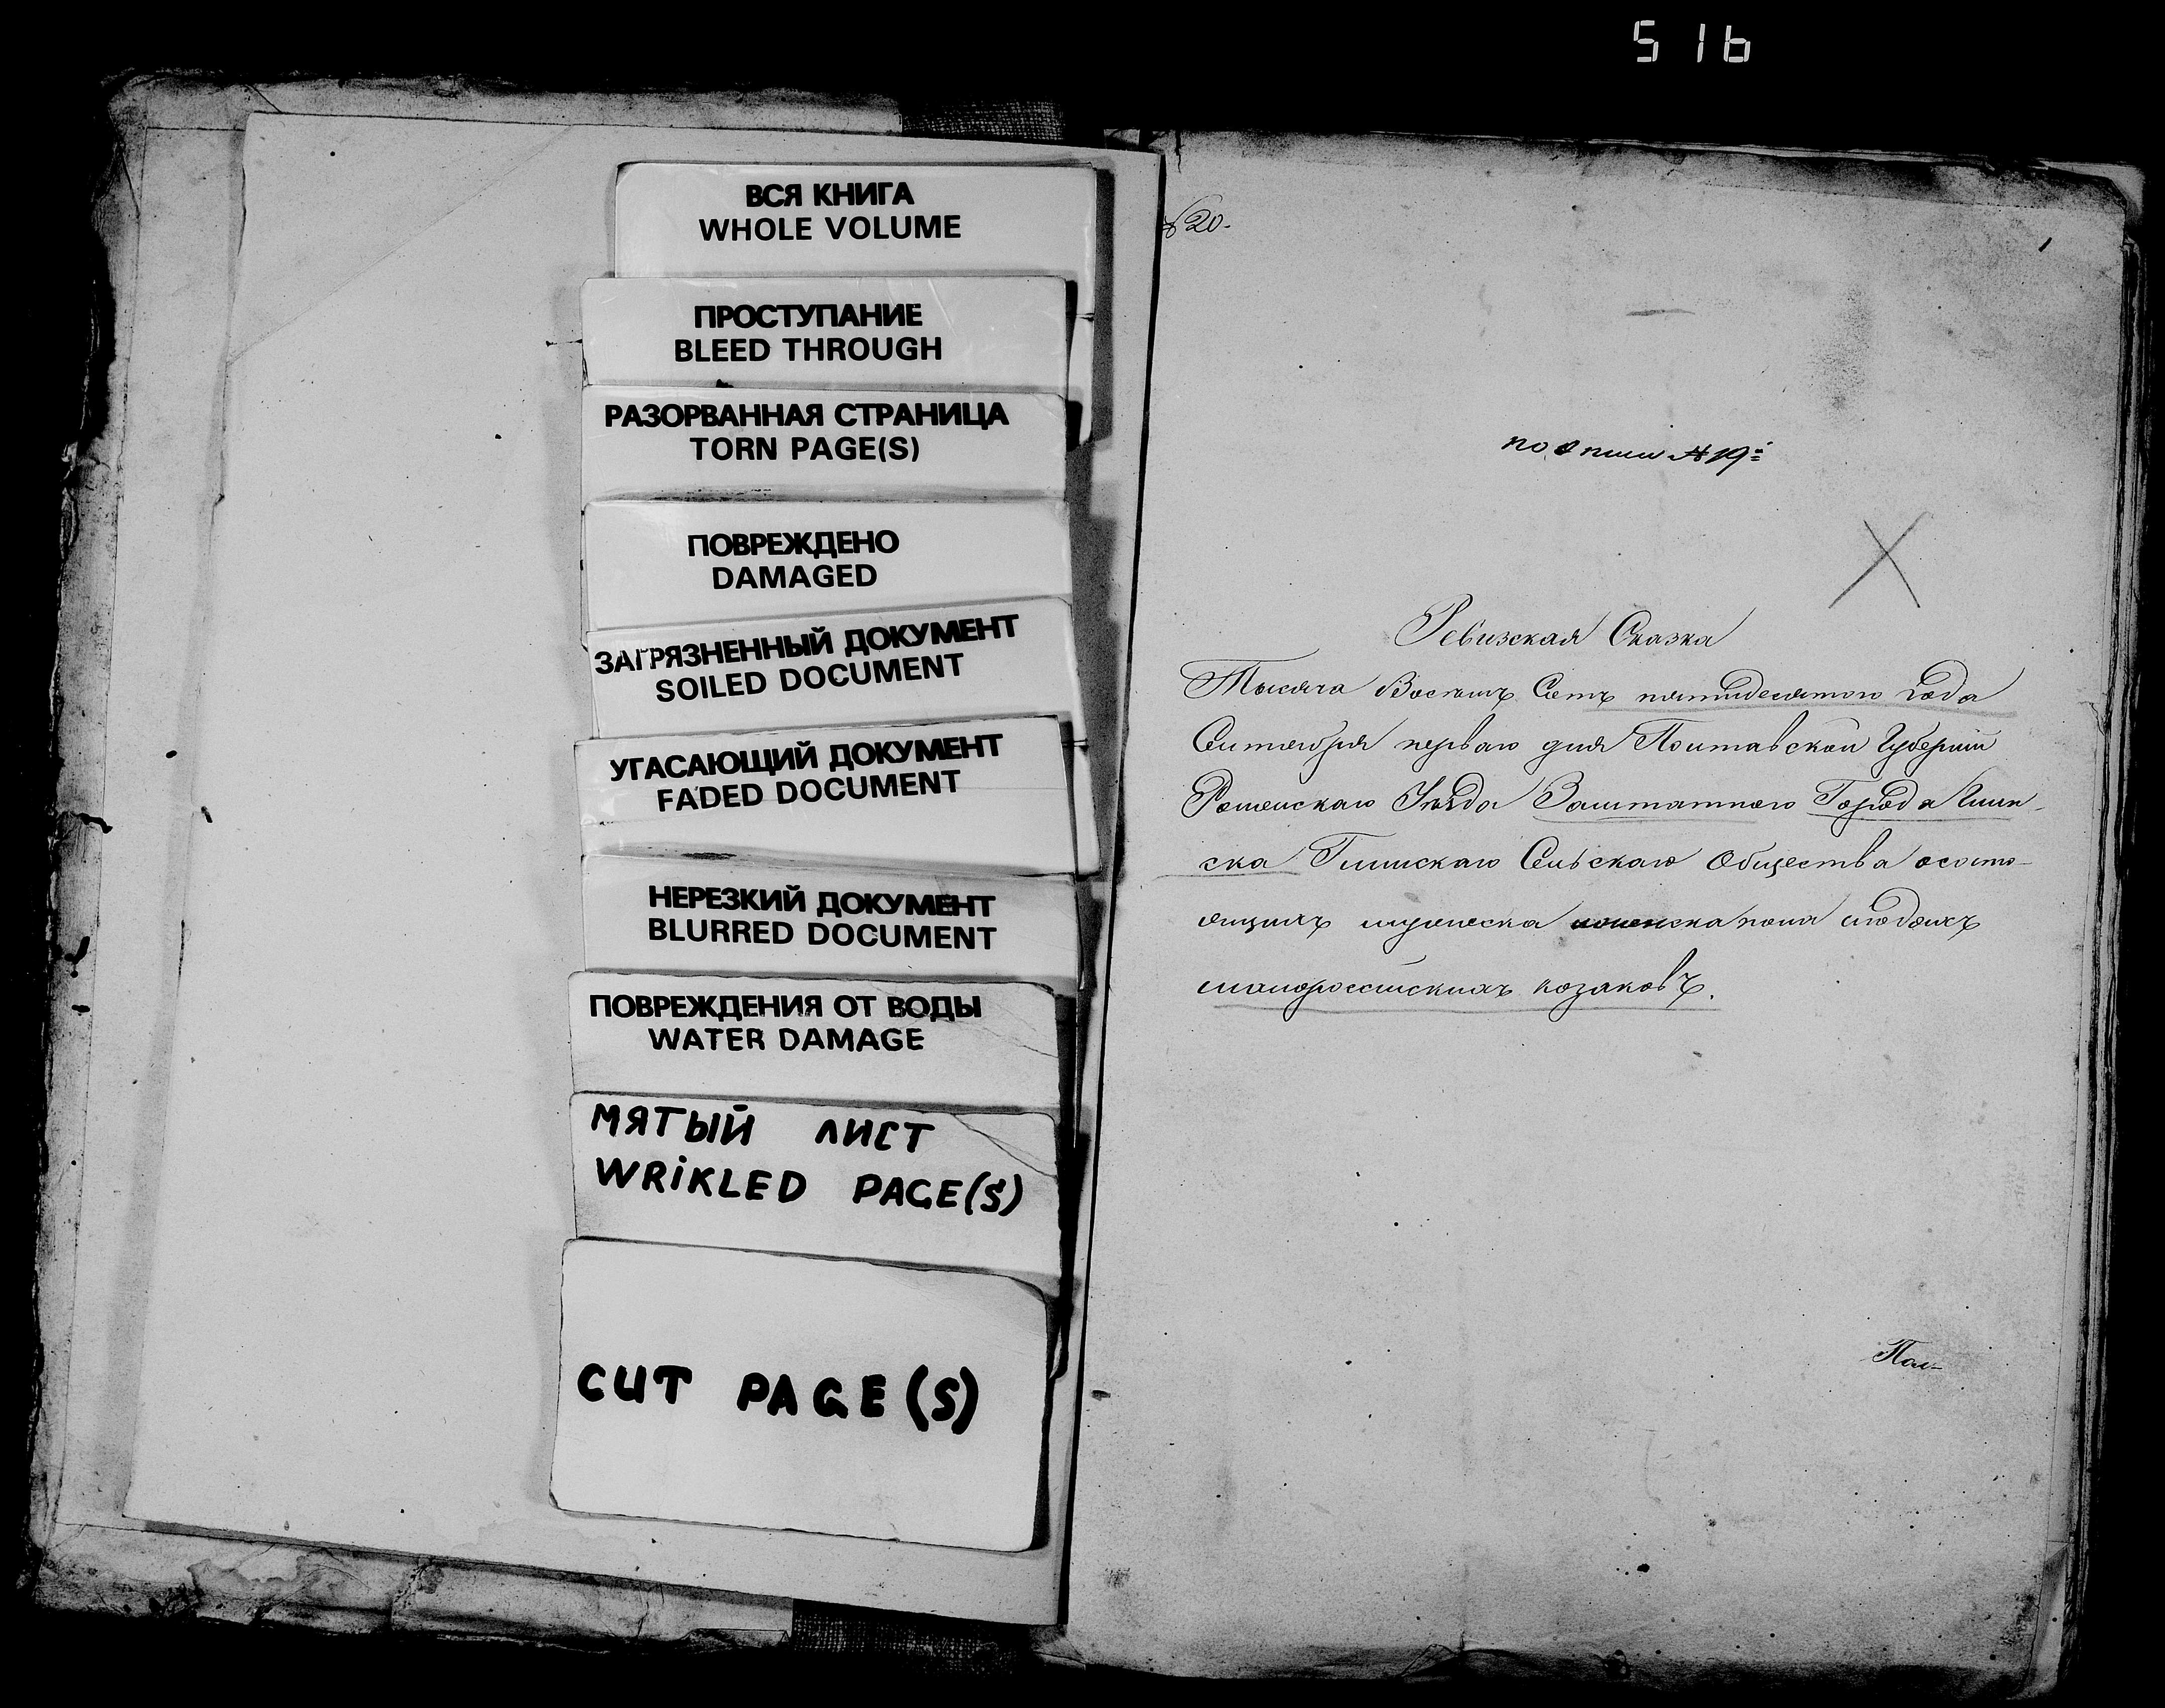 516
ВСЯ КНИГА
WHOLE VOLUME
ПРОСТУПАНИЕ
BLEED THROUGH
РАЗОРВАННАЯ СТРАНИЦА
TORN PAGE(S)
ПОВРЕЖДЕНО
DAMAGED
ЗАГРЯЗНЕННЫЙ ДОКУМЕНТ
SOILED DOCUMENT
УГАСАЮЩИЙ ДОКУМЕНТ
FADED DOCUMENT
НЕРЕЗКИЙ ДОКУМЕНТ
BLURRED DOCUMENT
ПОВРЕЖДЕНИЯ ОТ ВОДЫ
WATER DAMAGE
МЯТЫЙ ЛИСТ
WRIKLED PAGE(S)
CUT PAGE(S)
№ 20.
1
по описи № 19й
Ревизская Сказка
Тысяча Восемь Сотъ пятидесятого года
Сентября перваго дня Полтавской Губернии
Роменскаго Уѣзда Заштатного Города Глин-
ска Глинскаго Сельскаго Общества ососто-
ящихъ мужеска женска пола людяхъ
малороссийскихъ козаковъ.
Пол-